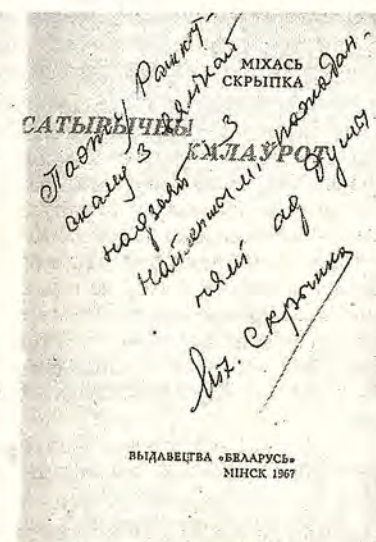 МІХАСЬ
СКРЫПКА
САТЫРЫЧНЫ
КАЛАЎРОТ
Паэту
скаму з вялікай
надзеяй і з
найлепшымі пажадан-
нямі ад душы
Міх. Скрыпка
ВЫДАВЕЦТВА «БЕЛАРУСЬ»
МІНСК 1967